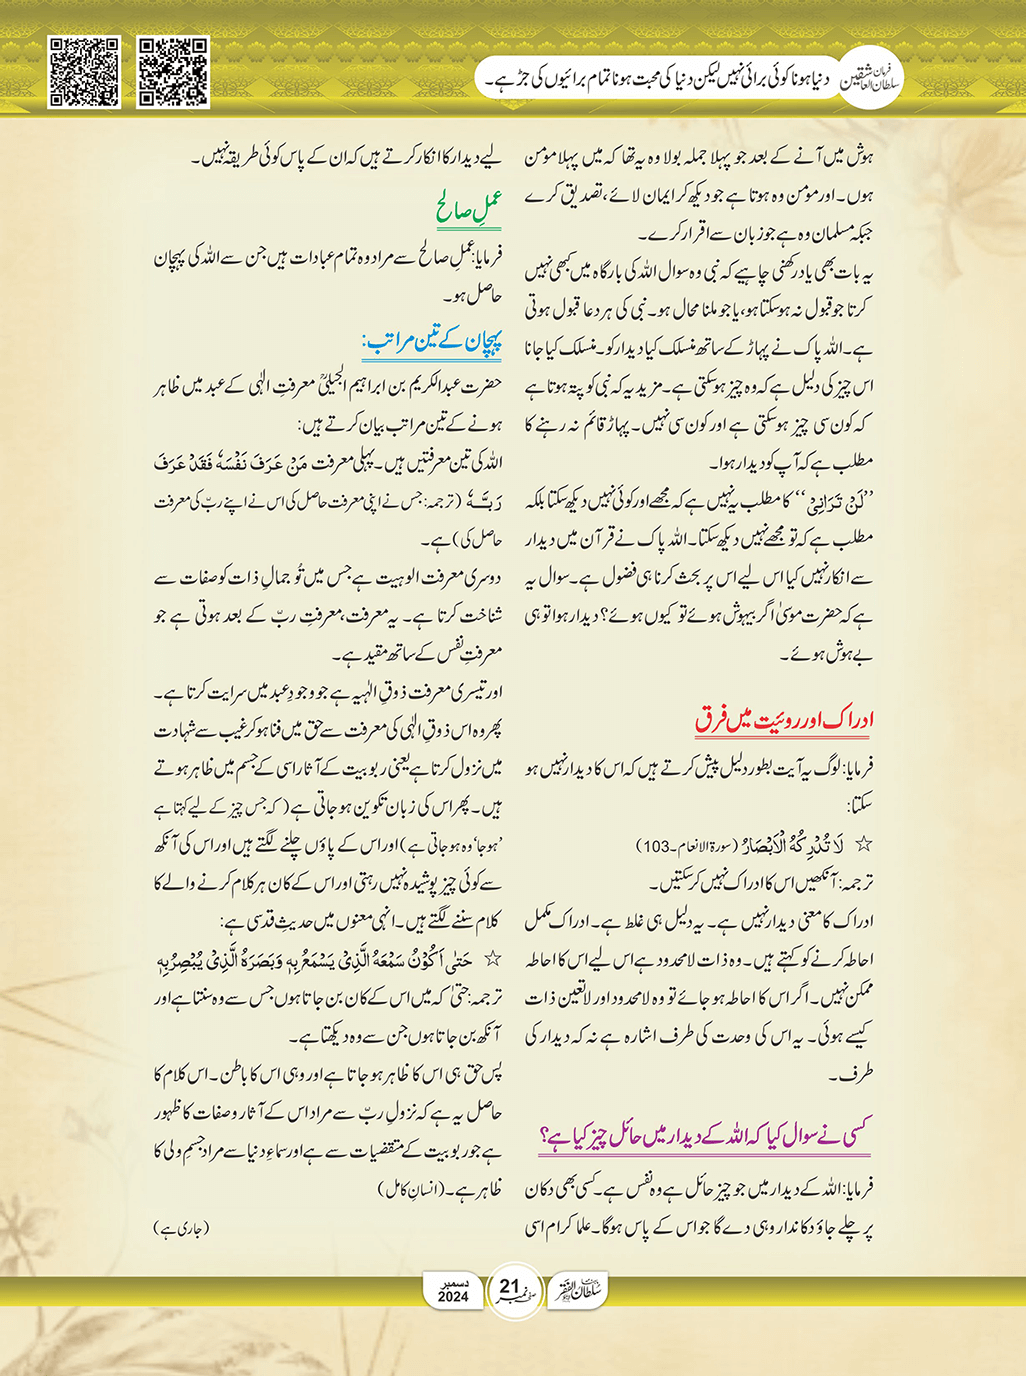 فرمان سلطان العاشقین
دنیا ہونا کوئی برائی نہیں لیکن دنیا کی محبت ہونا تمام برائیوں کی جڑ ہے۔
ہوش میں آنے کے بعد جو پہلا جملہ بولا وہ یہ تھا کہ میں پہلا مومن
ہوں۔ اور مومن وہ ہوتا ہے جو دیکھ کر ایمان لائے، تصدیق کرے
جبکہ مسلمان وہ ہے جو زبان سے اقرار کرے۔
یہ بات بھی یاد رکھنی چاہیے کہ نبی وہ سوال اللہ کی بارگاہ میں کبھی نہیں
کرتا جو قبول نہ ہوسکتا ہو، یا جو ملنا محال ہو۔ نبی کی ہر دعا قبول ہوتی
ہے۔ اللہ پاک نے پہاڑ کے ساتھ منسلک کیا دیدار کو۔ منسلک کیا جانا
اس چیز کی دلیل ہے کہ وہ چیز ہوسکتی ہے۔ مزید یہ کہ نبی کو پتہ ہوتا ہے
کہ کون سی چیز ہوسکتی ہے اور کون سی نہیں۔ پہاڑ قائم نہ رہنے کا
مطلب ہے کہ آپ کو دیدار ہوا۔
’’لَنْ تَرَانِیْ‘‘ کا مطلب یہ نہیں ہے کہ مجھے اور کوئی نہیں دیکھ سکتا بلکہ
مطلب ہے کہ تو مجھے نہیں دیکھ سکتا۔ اللہ پاک نے قرآن میں دیدار
سے انکار نہیں کیا اس لیے اس پر بحث کرنا ہی فضول ہے۔ سوال یہ
ہے کہ حضرت موسیٰ اگر بیہوش ہوئے تو کیوں ہوئے؟ دیدار ہوا تو ہی
بے ہوش ہوئے۔
ادراک اور روئیت میں فرق
فرمایا: لوگ یہ آیت بطور دلیل پیش کرتے ہیں کہ اس کا دیدار نہیں ہو
سکتا:
☆ لَا تُدْرِکُهُ الْاَبْصَارُ (سورۃ الانعام۔103)
ترجمہ: آنکھیں اس کا ادراک نہیں کرسکتیں۔
ادراک کا معنی دیدار نہیں ہے۔ یہ دلیل ہی غلط ہے۔ ادراک مکمل
احاطہ کرنے کو کہتے ہیں۔ وہ ذات لامحدود ہے اس لیے اس کا احاطہ
ممکن نہیں۔ اگر اس کا احاطہ ہو جائے تو وہ لامحدود اور لاتعین ذات
کیسے ہوئی۔ یہ اس کی وحدت کی طرف اشارہ ہے نہ کہ دیدار کی
طرف۔
کسی نے سوال کیا کہ اللہ کے دیدار میں حائل چیز کیا ہے؟
فرمایا: اللہ کے دیدار میں جو چیز حائل ہے وہ نفس ہے۔ کسی بھی دکان
پر چلے جاؤ دکاندار وہی دے گا جو اس کے پاس ہوگا۔ علما کرام اسی
لیے دیدار کا انکار کرتے ہیں کہ ان کے پاس کوئی طریقہ نہیں۔
عملِ صالح
فرمایا: عملِ صالح سے مراد وہ تمام عبادات ہیں جن سے اللہ کی پہچان
حاصل ہو۔
پہچان کے تین مراتب:
حضرت عبدالکریم بن ابراہیم الجیلیؒ معرفتِ الٰہی کے عبد میں ظاہر
ہونے کے تین مراتب بیان کرتے ہیں:
اللہ کی تین معرفتیں ہیں۔ پہلی معرفت مَنْ عَرَفَ نَفْسَہٗ فَقَدْ عَرَفَ
رَبَّـــہٗ (ترجمہ: جس نے اپنی معرفت حاصل کی اس نے اپنے ربّ کی معرفت
حاصل کی) ہے۔
دوسری معرفت الوہیت ہے جس میں تُو جمالِ ذات کو صفات سے
شناخت کرتا ہے۔ یہ معرفت، معرفتِ ربّ کے بعد ہوتی ہے جو
معرفتِ نفس کے ساتھ مقید ہے۔
اور تیسری معرفت ذوقِ الٰہیہ ہے جو وجودِ عبد میں سرایت کرتا ہے۔
پھر وہ اس ذوقِ الٰہی کی معرفت سے حق میں فنا ہو کر غیب سے شہادت
میں نزول کرتا ہے یعنی ربوبیت کے آثار اسی کے جسم میں ظاہر ہوتے
ہیں۔ پھر اس کی زبان تکوین ہو جاتی ہے (کہ جس چیز کے لیے کہتا ہے
’ہوجا‘ وہ ہو جاتی ہے) اور اس کے پاؤں چلنے لگتے ہیں اور اس کی آنکھ
سے کوئی چیز پوشیدہ نہیں رہتی اور اس کے کان ہر کلام کرنے والے کا
کلام سننے لگتے ہیں۔ انہی معنوں میں حدیثِ قدسی ہے:
☆ حَتّٰی اَکُوْنُ سَمْعَہُ الَّذِیْ یَسْمَعُ بِہٖ وَبَصَرَہُ الَّذِیْ یُبْصِرُ بِہٖ
ترجمہ: حتیٰ کہ میں اس کے کان بن جاتا ہوں جس سے وہ سنتا ہے اور
آنکھ بن جاتا ہوں جن سے وہ دیکھتا ہے۔
پس حق ہی اس کا ظاہر ہو جاتا ہے اور وہی اس کا باطن۔ اس کلام کا
حاصل یہ ہے کہ نزولِ ربّ سے مراد اس کے آثار و صفات کا ظہور
ہے جو ربوبیت کے مقتضیات سے ہے اور سماءِ دنیا سے مراد جسمِ ولی کا
ظاہر ہے۔ (انسانِ کامل)
(جاری ہے)
سلطان الفقر
صفحہ نمبر 21
دسمبر 2024